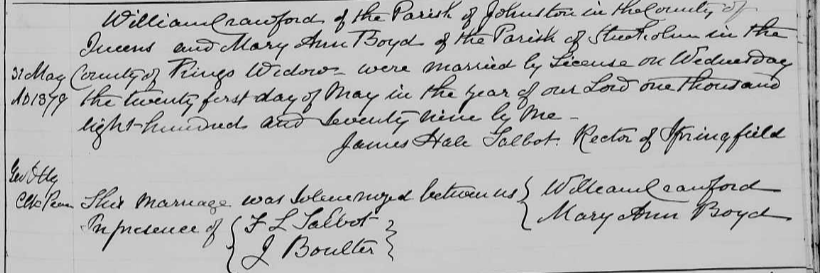 William Crawford of the Parish of Johnston in the County of
Queens and Mary Ann Boyd of the Parish of Studholm in the
31 May County of Kings Widow were married by License on Wednesday
AD 1879 the twenty first day of May in the year of our Lord one thousand
eight hundred and seventy nine by me -
James Hale Talbot. Rector of Springfield
Clk Peace This marriage was solemnized between us { William Crawford
Mary Ann Boyd
In presence of { F L Talbot }
J Boulter